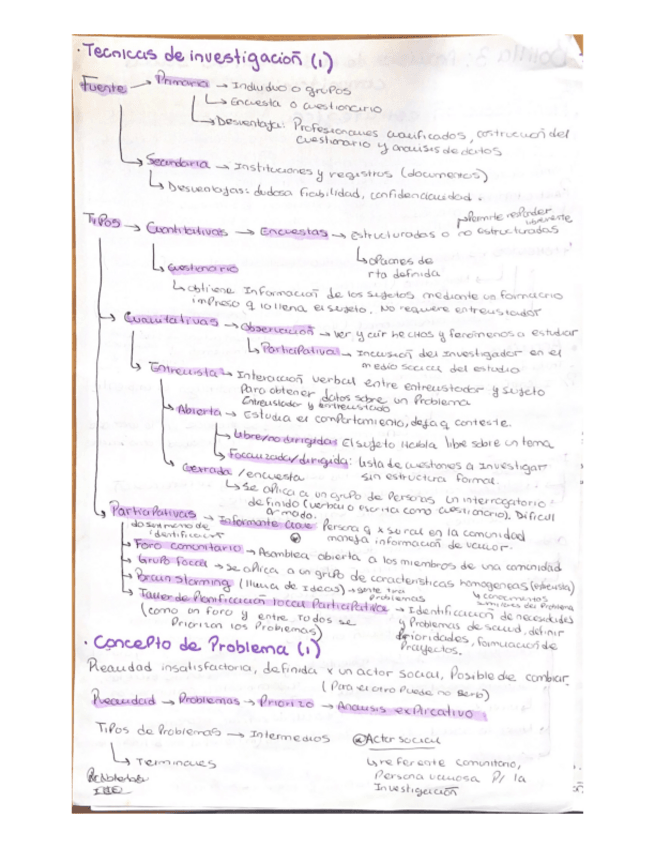 · Tecnicas de investigación (1)
Fuente → Primaria → Individuo o grupos
↳ Encuesta o cuestionario
↳ Desventaja: Profesionales cualificados, construcción del
cuestionario y analisis de datos
↳ Secundaria → Instituciones y registros (documentos)
↳ Desventajas: dudosa fiabilidad, confidencialidad.
Tipos → Cuantitativas → Encuestas → Estructuradas o no estructuradas
↳ Permite responder libremente
↳ opciones de
rta definida
↳ Cuestionario
↳ obtiene Información de los sujetos mediante un formulario
impreso q lo llena el sujeto. No requiere entrevistador
↳ Cualitativas → Observación → ver y oir hechos y fenómenos a estudiar
↳ Participativa → Inclusión del Investigador en el
medio social del estudio
↳ Entrevista → Interacción verbal entre entrevistador y sujeto
para obtener datos sobre un Problema
Entrevistador y entrevistado
↳ Abierta → Estudia el comportamiento, deja q conteste.
↳ Libre/no dirigida: El sujeto habla libre sobre un tema
↳ Focalizada/dirigida: lista de cuestiones a Investigar
sin estructura formal.
↳ Cerrada / encuesta
↳ Se aplica a un grupo de Personas un interrogatorio
definido (verbal o escrita como cuestionario). Dificil
armado.
↳ Participativas → Informante clave: Persona q x su rol en la comunidad
maneja información de valor.
→ Foro comunitario → Asamblea abierta a los miembros de una comunidad
→ Grupo focal → se aplica a un grupo de características homogeneas
→ Brain storming (lluvia de ideas) → gente tira
problemas
→ Taller de Planificación local Participativa → Identificación de necesidades
(como un foro y entre todos se
Priorizan los Problemas)
y Problemas de salud, definir
prioridades, formulación de
Proyectos.
· Concepto de Problema (1)
Realidad insatisfactoria, definida x un actor social, Posible de cambiar.
(Para el otro Puede no serlo)
Realidad → Problemas → Priorizo → Analisis explicativo
Tipos de Problemas → Intermedios
↳ Terminales
Actor social
↳ referente comunitario,
Persona valiosa P/ la
Investigación